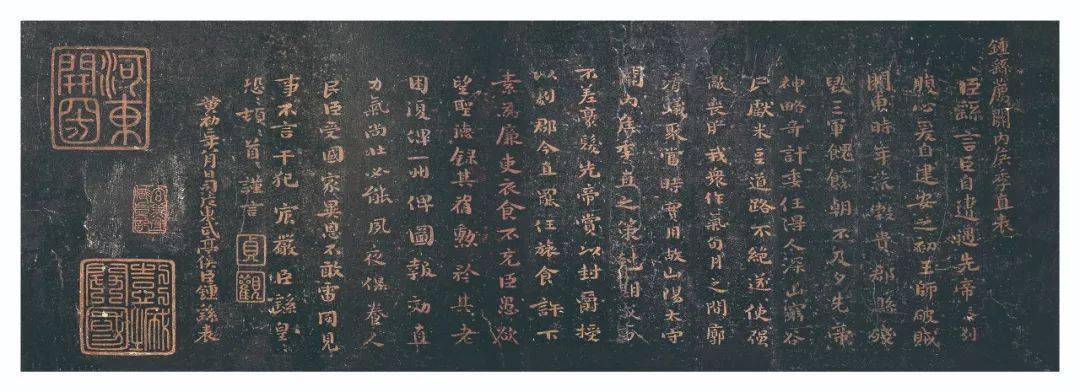 鍾繇薦關內侯季直表
臣繇言臣自遭遇先帝忝列
腹心爰自建安之初王師破賊
關東時年荒穀貴郡縣殘
毀三軍餽饟朝不及夕先帝
神略奇計委任得人深山窮谷
民獻米豆道路不絕遂使強
敵喪膽我衆作氣旬月之間廓
清蟻聚當時實用故山陽太守
關內侯季直之策剋期成事
不差豪髮先帝賞以封爵授
以劇郡今直罷任旅食許下
素爲廉吏衣食不充臣愚欲
望聖德錄其舊勳矜其老
困復俾一州俾圖報效直
力氣尚壯必能夙夜保養人
民臣受國家異恩不敢雷同見
事不言干犯宸嚴臣繇皇
恐〻頓〻首〻謹言
貞觀
黃初二年八月日司徒東武亭侯臣鍾繇表
河東